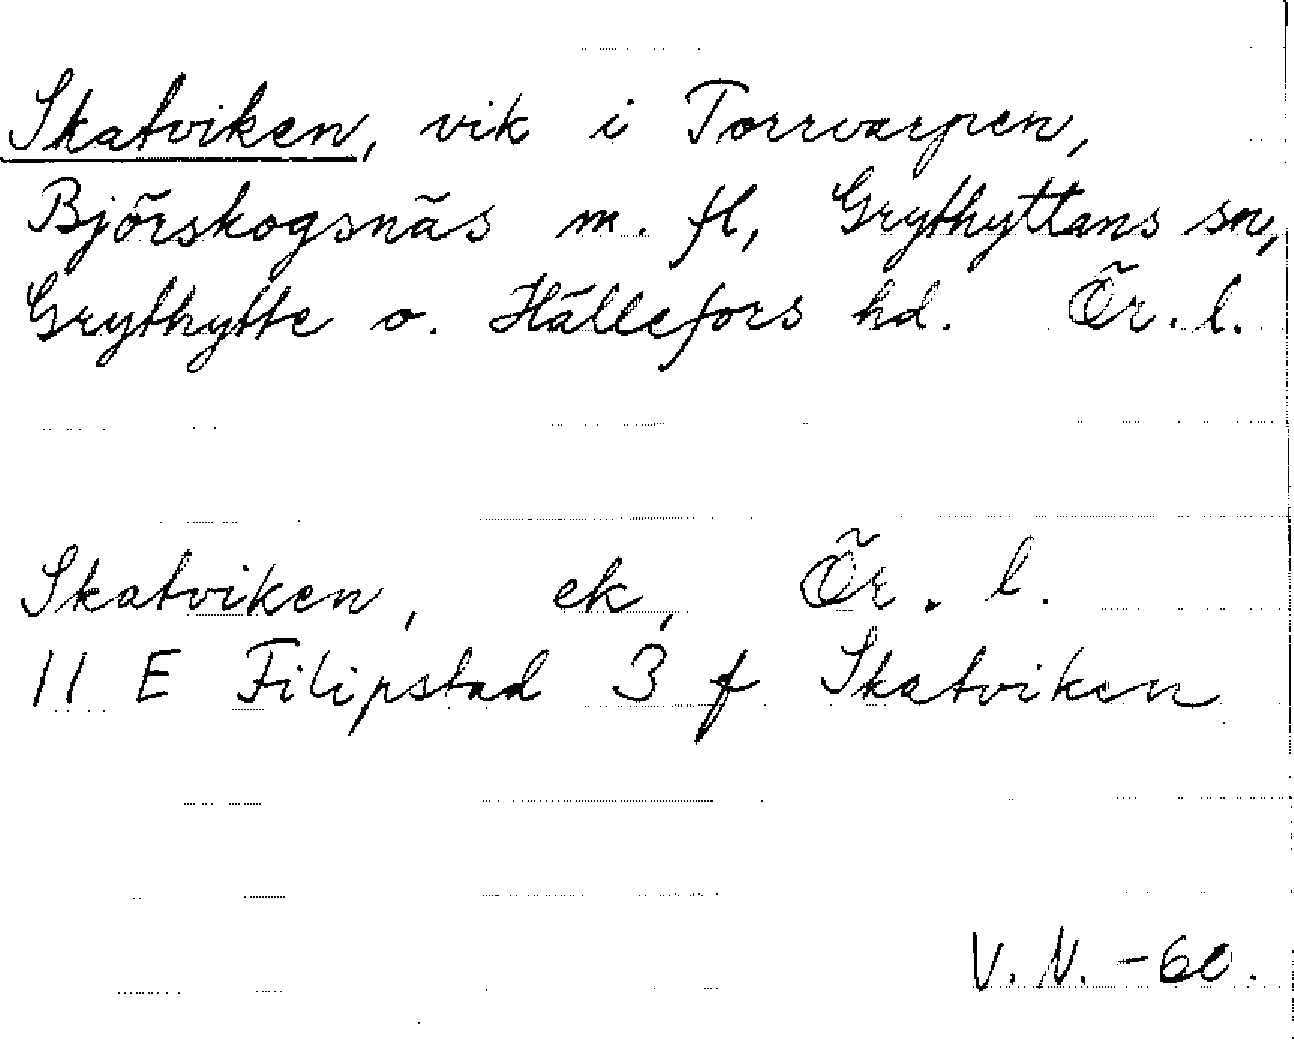 Skatviken, vik i Torrvarpen,
Björskogsnäs m. fl, Grythyttans sn,
Grythytte o. Hällefors hd. Ör. l.
Skatviken, ek, Ör. l.
11 E Filipstad 3 f Skatviken
V. N. -60.